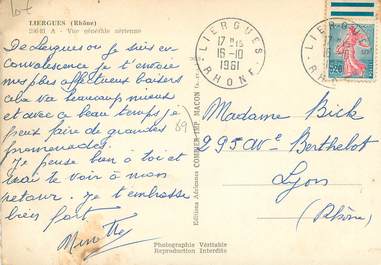 LIERGUES (Rhône)
29641 A - Vue générale aérienne
De Liergues où je suis en
convalescence je t'envoie
mes plus affectueux baisers
cela va beaucoup mieux
et avec ce beau temps je
peux faire de grandes
promenades.
Je pense bien à toi et
irai te voir à mon
retour. Je t'embrasse
bien fort.
Minette
69
Editions Aériennes COMBIER IMP. MACON
Photographie Véritable
Reproduction Interdite
LIERGUES
17H15
16-10
1961
RHONE
LIERGUES
17
16
RHO
0,20
Madame Bick
295 Ave Berthelot
Lyon
(Rhône)